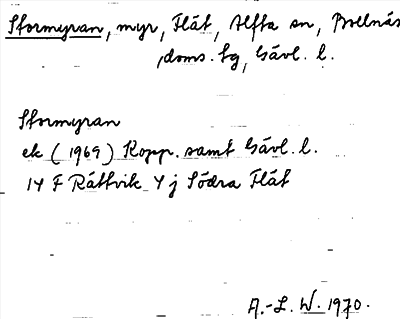 Stormyran, myr, Flät, Alfta sn, Bollnäs
doms. fg, Gävl. l.
Stormyran
ek (1969) Kopp. samt Gävl. l.
14 F Rättvik 4 j Södra Flät
A.-L. W. 1970.